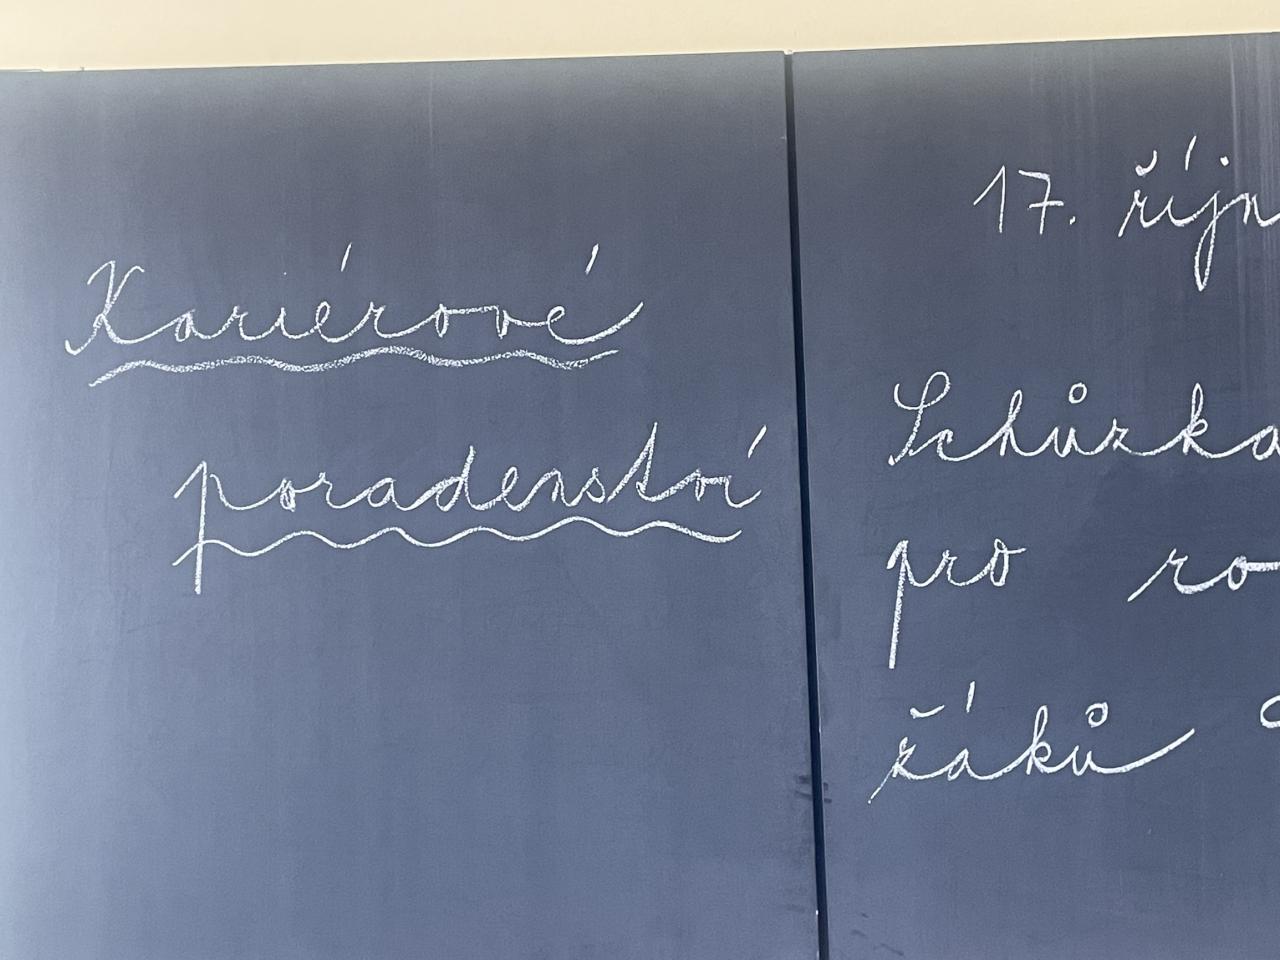 Kariérové
poradenství
17. říjn
Schůzka
pro ro
žáků